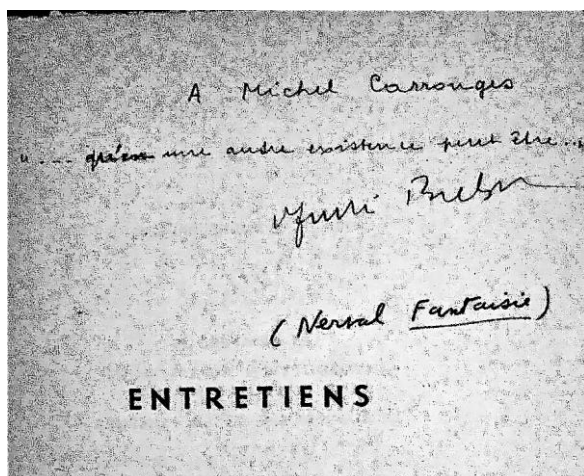 A Michel Carrouges
"... une autre existence peut être..."
André Breton
(Nerval Fantaisie)
ENTRETIENS